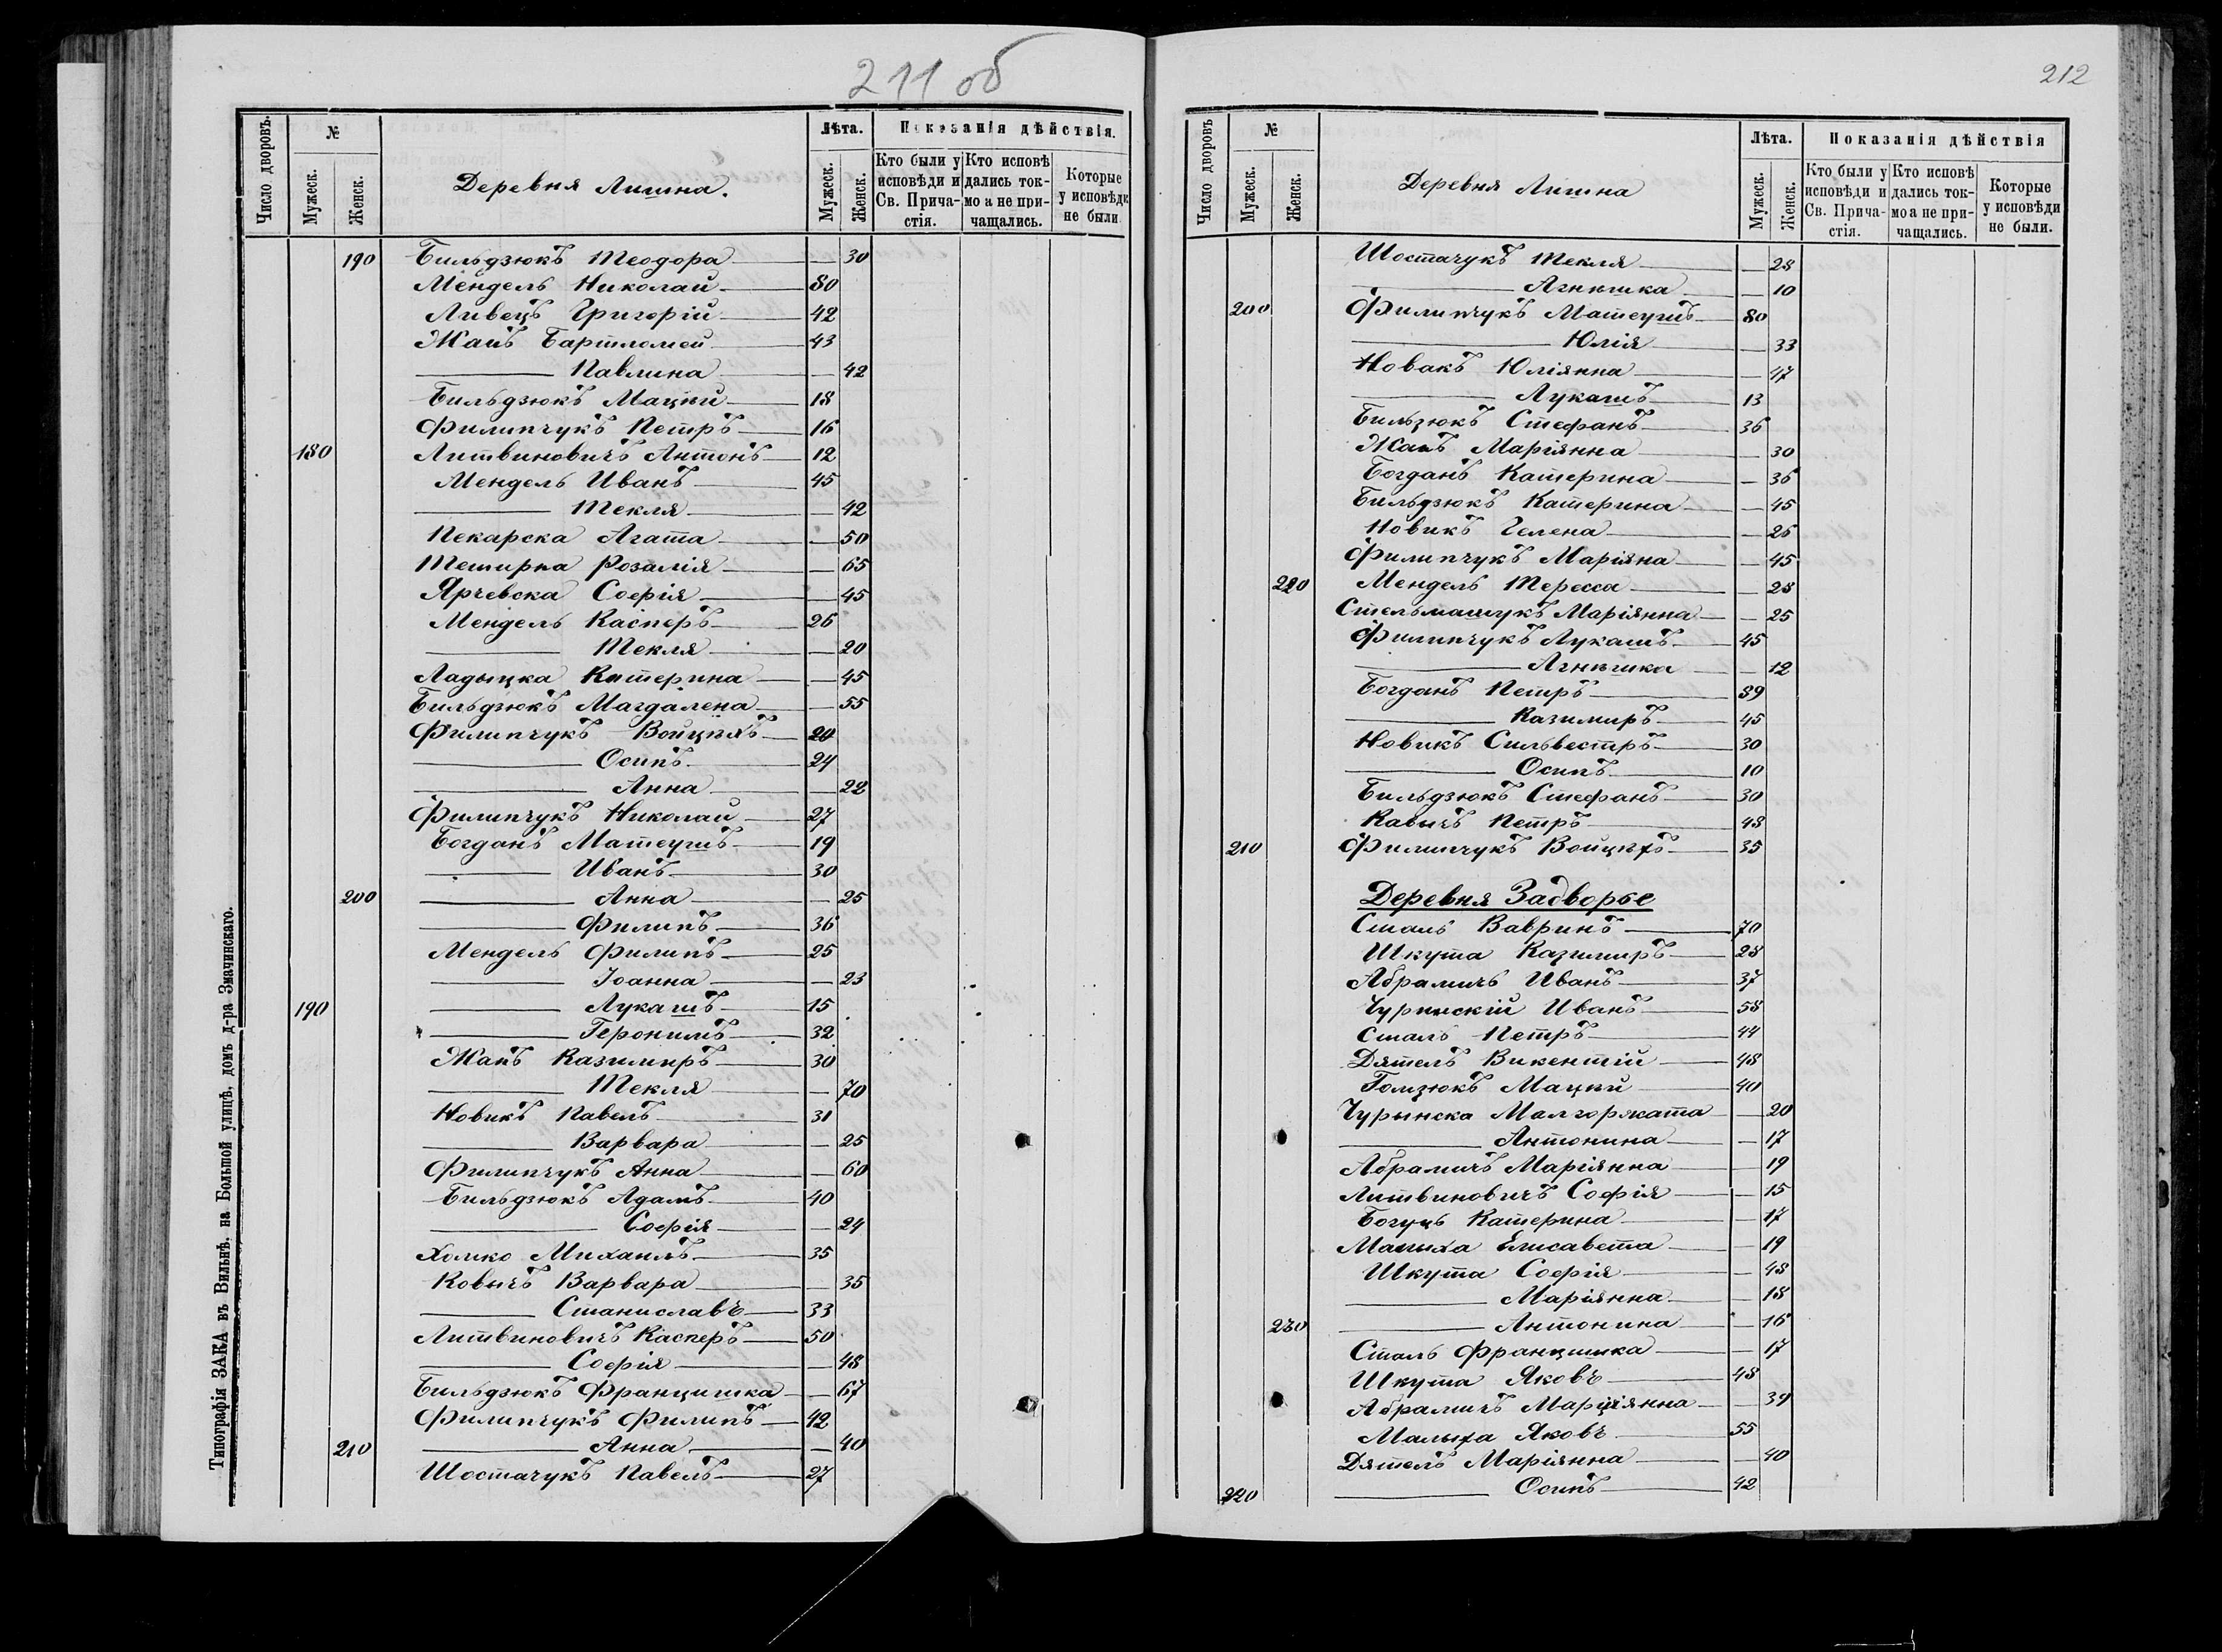 211 об
Число дворовъ.
№
Мужеск.
Женск.
Деревня Лишна.
Лѣта.
Мужеск.
Женск.
Показанія дѣйствія.
Кто были у исповѣди и Св. Прича-стія.
Кто исповѣ дались ток-мо а не при-чащались.
Которые у исповѣди не были
190 Бильдзюкъ Теодора — 30
Мендель Николай 80
Ливецъ Григорій 42
Жакъ Бартломей 43
— Павлина — 42
Бильдзюкъ Мацѣй 18
Филипчукъ Петръ 16
180 Литвиновичъ Антонъ 12
Мендель Иванъ 45
— Текля — 42
Пекарска Агата — 50
Розалія — 65
Ярчевска Софія — 45
Мендель Касперъ 26
— Текля — 20
Ладыцка Катерина — 45
Бильдзюкъ Магдалена — 55
Филипчукъ Войцѣхъ 20
— Осипъ 24
— Анна — 22
Филипчукъ Николай 27
Богданъ Матеушъ 19
— Иванъ 30
200 — Анна — 25
— Филипъ 36
Мендель Филипъ 25
— Іоанна — 23
190 — Лукашъ 15
— Геронимъ 32
Жакъ Казимиръ 30
— Текля — 70
Новикъ Павелъ 31
— Варвара — 25
Филипчукъ Анна — 60
Бильдзюкъ Адамъ 40
— Софія — 24
Хомко Михаилъ 35
Ковычъ Варвара — 35
— Станиславъ 33
Литвиновичъ Касперъ 50
— Софія — 48
Бильдзюкъ Францишка — 67
Филипчукъ Филипъ 42
210 — Анна — 40
Шостачукъ Павелъ 27
Типографія ЗАКА въ Вильнѣ, на Большой улицѣ, домъ д-ра Змачинскаго.
212
Число дворовъ
№
Мужеск.
Женск.
Деревня Лишна
Лѣта.
Мужеск.
Женск.
Показанія дѣйствія
Кто были у исповѣди и Св. Прича-стія.
Кто исповѣ дались ток-мо а не при-чащались.
Которые у исповѣди не были.
Шостачукъ Текля — 28
— Агнѣшка — 10
200 Филипчукъ Матеушъ 80
— Юлія — 33
Новакъ Юліянна — 47
— Лукашъ 13
Бильзюкъ Стефанъ 36
Жакъ Маріянна — 30
Богданъ Катерина — 36
Бильдзюкъ Катерина — 45
Новикъ Гелена — 26
Филипчукъ Маріяна — 45
220 Мендель Тересса — 28
Стельмашукъ Маріянна — 25
Филипчукъ Лукашъ 45
— Агнѣшка — 12
Богданъ Петръ 39
— Казимиръ 45
Новикъ Сильвестръ 30
— Осипъ 10
Бильдзюкъ Стефанъ 30
Кавычъ Петръ 48
210 Филипчукъ Войцѣхъ 35
Деревня Задворье
Сталь Вавринъ 70
Шкута Казимиръ 28
Абрамичъ Иванъ 37
Чурынскій Иванъ 58
Сталь Петръ 44
Дятелъ Викентій 48
Гомзюкъ Мацѣй 40
Чурынска Малгоржата — 20
— Антонина — 17
Абрамичъ Маріянна — 19
Литвиновичъ Софія — 15
Богуць Катерина — 17
Малыха Елисавета — 19
Шкута Софія — 48
— Маріянна — 18
230 — Антонина — 16
Сталь Францишка — 17
Шкута Яковъ 48
Абрамичъ Марціянна — 39
Малыха Яковъ 55
Дятелъ Маріянна — 40
220 — Осипъ 42